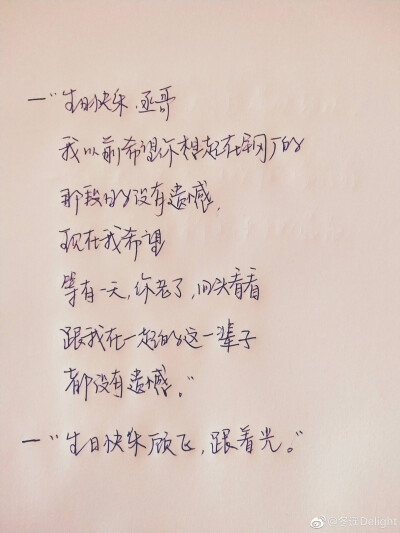 一"生日快乐,丞哥
我以前希望你想起在钢厂的
那段时候没有遗憾,
现在我希望
等有一天,你老了,回头看看
跟我在一起的这一辈子
都没有遗憾。"
一"生日快乐顾飞,跟着光。"
Delight